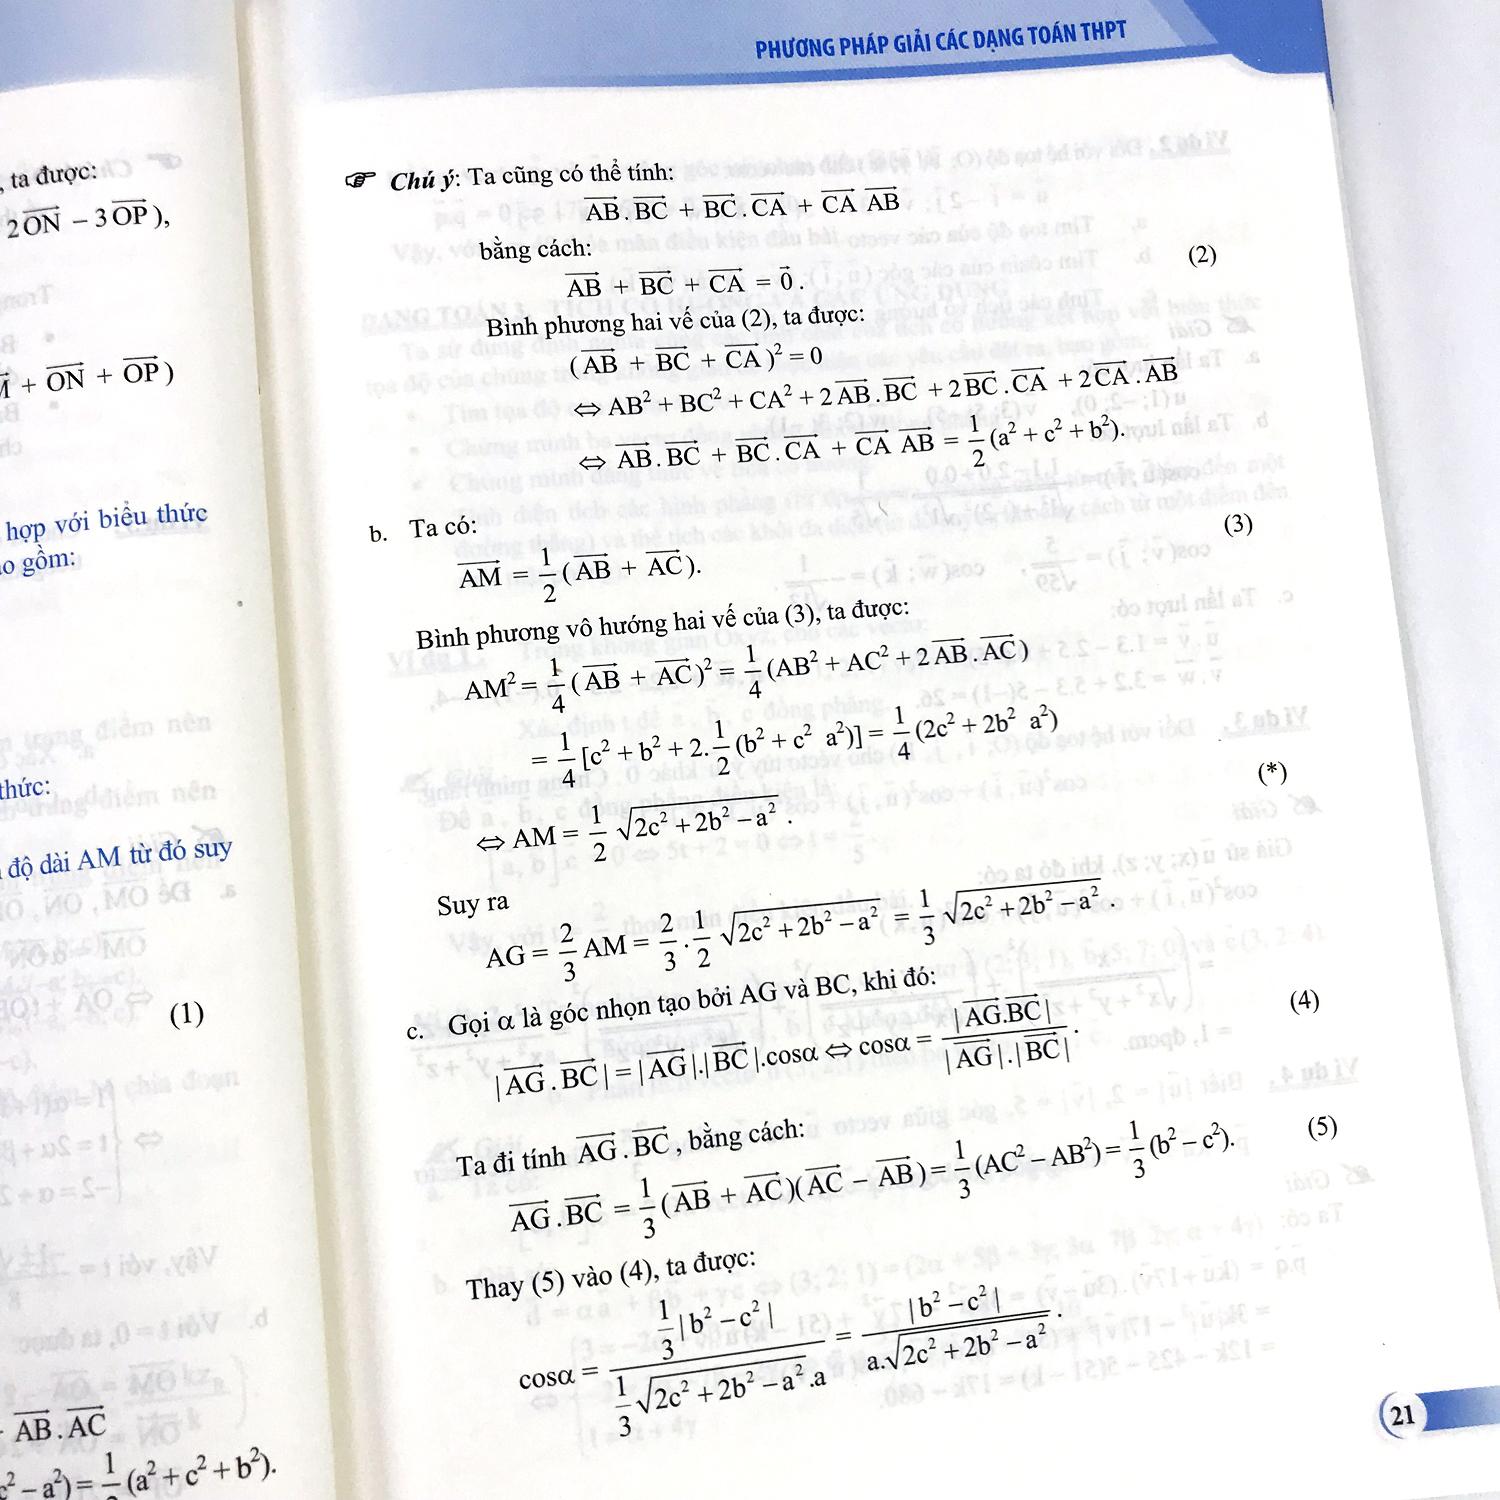 PHƯƠNG PHÁP GIẢI CÁC DẠNG TOÁN THPT
, ta được:
2ON⃗ – 3OP⃗),
+ ON⃗ + OP⃗)
hợp với biểu thức
gồm:
thức:
độ dài AM từ đó suy
(1)
AB⃗.AC⃗
– a²) = (a² + c² + b²).
☞ Chú ý: Ta cũng có thể tính:
AB⃗.BC⃗ + BC⃗.CA⃗ + CA⃗ AB⃗
bằng cách:
AB⃗ + BC⃗ + CA⃗ = 0⃗. (2)
Bình phương hai vế của (2), ta được:
(AB⃗ + BC⃗ + CA⃗)² = 0
⇔ AB² + BC² + CA² + 2AB⃗.BC⃗ + 2BC⃗.CA⃗ + 2CA⃗.AB⃗
⇔ AB⃗.BC⃗ + BC⃗.CA⃗ + CA⃗ AB⃗ = 1/2(a² + c² + b²).
b. Ta có:
AM⃗ = 1/2(AB⃗ + AC⃗). (3)
Bình phương vô hướng hai vế của (3), ta được:
AM² = 1/4(AB⃗ + AC⃗)² = 1/4(AB² + AC² + 2AB⃗.AC⃗)
= 1/4[c² + b² + 2.1/2(b² + c² a²)] = 1/4(2c² + 2b² a²)
⇔ AM = 1/2 √(2c² + 2b² – a²). (*)
Suy ra
AG = 2/3 AM = 2/3.1/2 √(2c² + 2b² – a²) = 1/3 √(2c² + 2b² – a²).
c. Gọi α là góc nhọn tạo bởi AG và BC, khi đó:
|AG⃗.BC⃗| = |AG⃗|.|BC⃗|.cosα ⇔ cosα = |AG⃗.BC⃗| / |AG⃗|.|BC⃗|. (4)
Ta đi tính AG⃗.BC⃗, bằng cách:
AG⃗.BC⃗ = 1/3(AB⃗ + AC⃗)(AC⃗ – AB⃗) = 1/3(AC² – AB²) = 1/3(b² – c²). (5)
Thay (5) vào (4), ta được:
cosα = 1/3|b² – c²| / 1/3√(2c² + 2b² – a²).a = |b² – c²| / a.√(2c² + 2b² – a²).
21